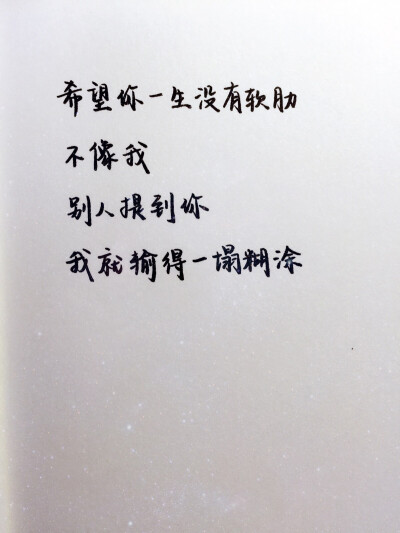 希望你一生没有软肋
不像我
别人提到你
我就输得一塌糊涂